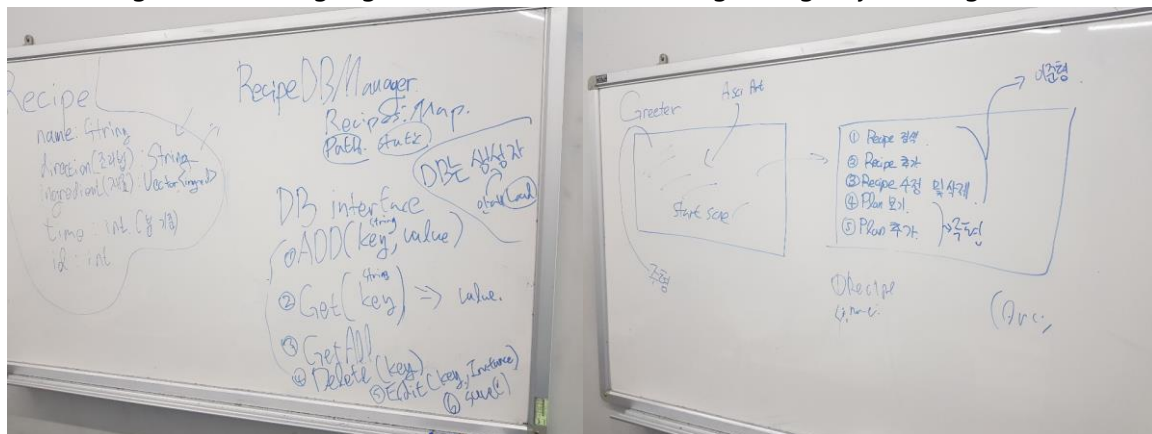 Recipe
name: String
direction(조리법): String
ingredient(재료): Vector<ingred>
time: int (분 기준)
id: int
RecipeDBManager
Recipes: Map.
Path: static
DB는 생성자
Load
DB interface
String
① ADD(key, value)
String
② Get(key) => value.
③ GetAll
④ Delete(key)
⑤ Edit(key, Instance)
⑥ save()
Greeter
Ascii Art
① Recipe 검색
② Recipe 추가
③ Recipe 수정 및 삭제
④ Plan 보기
⑤ Plan 추가
① Recipe